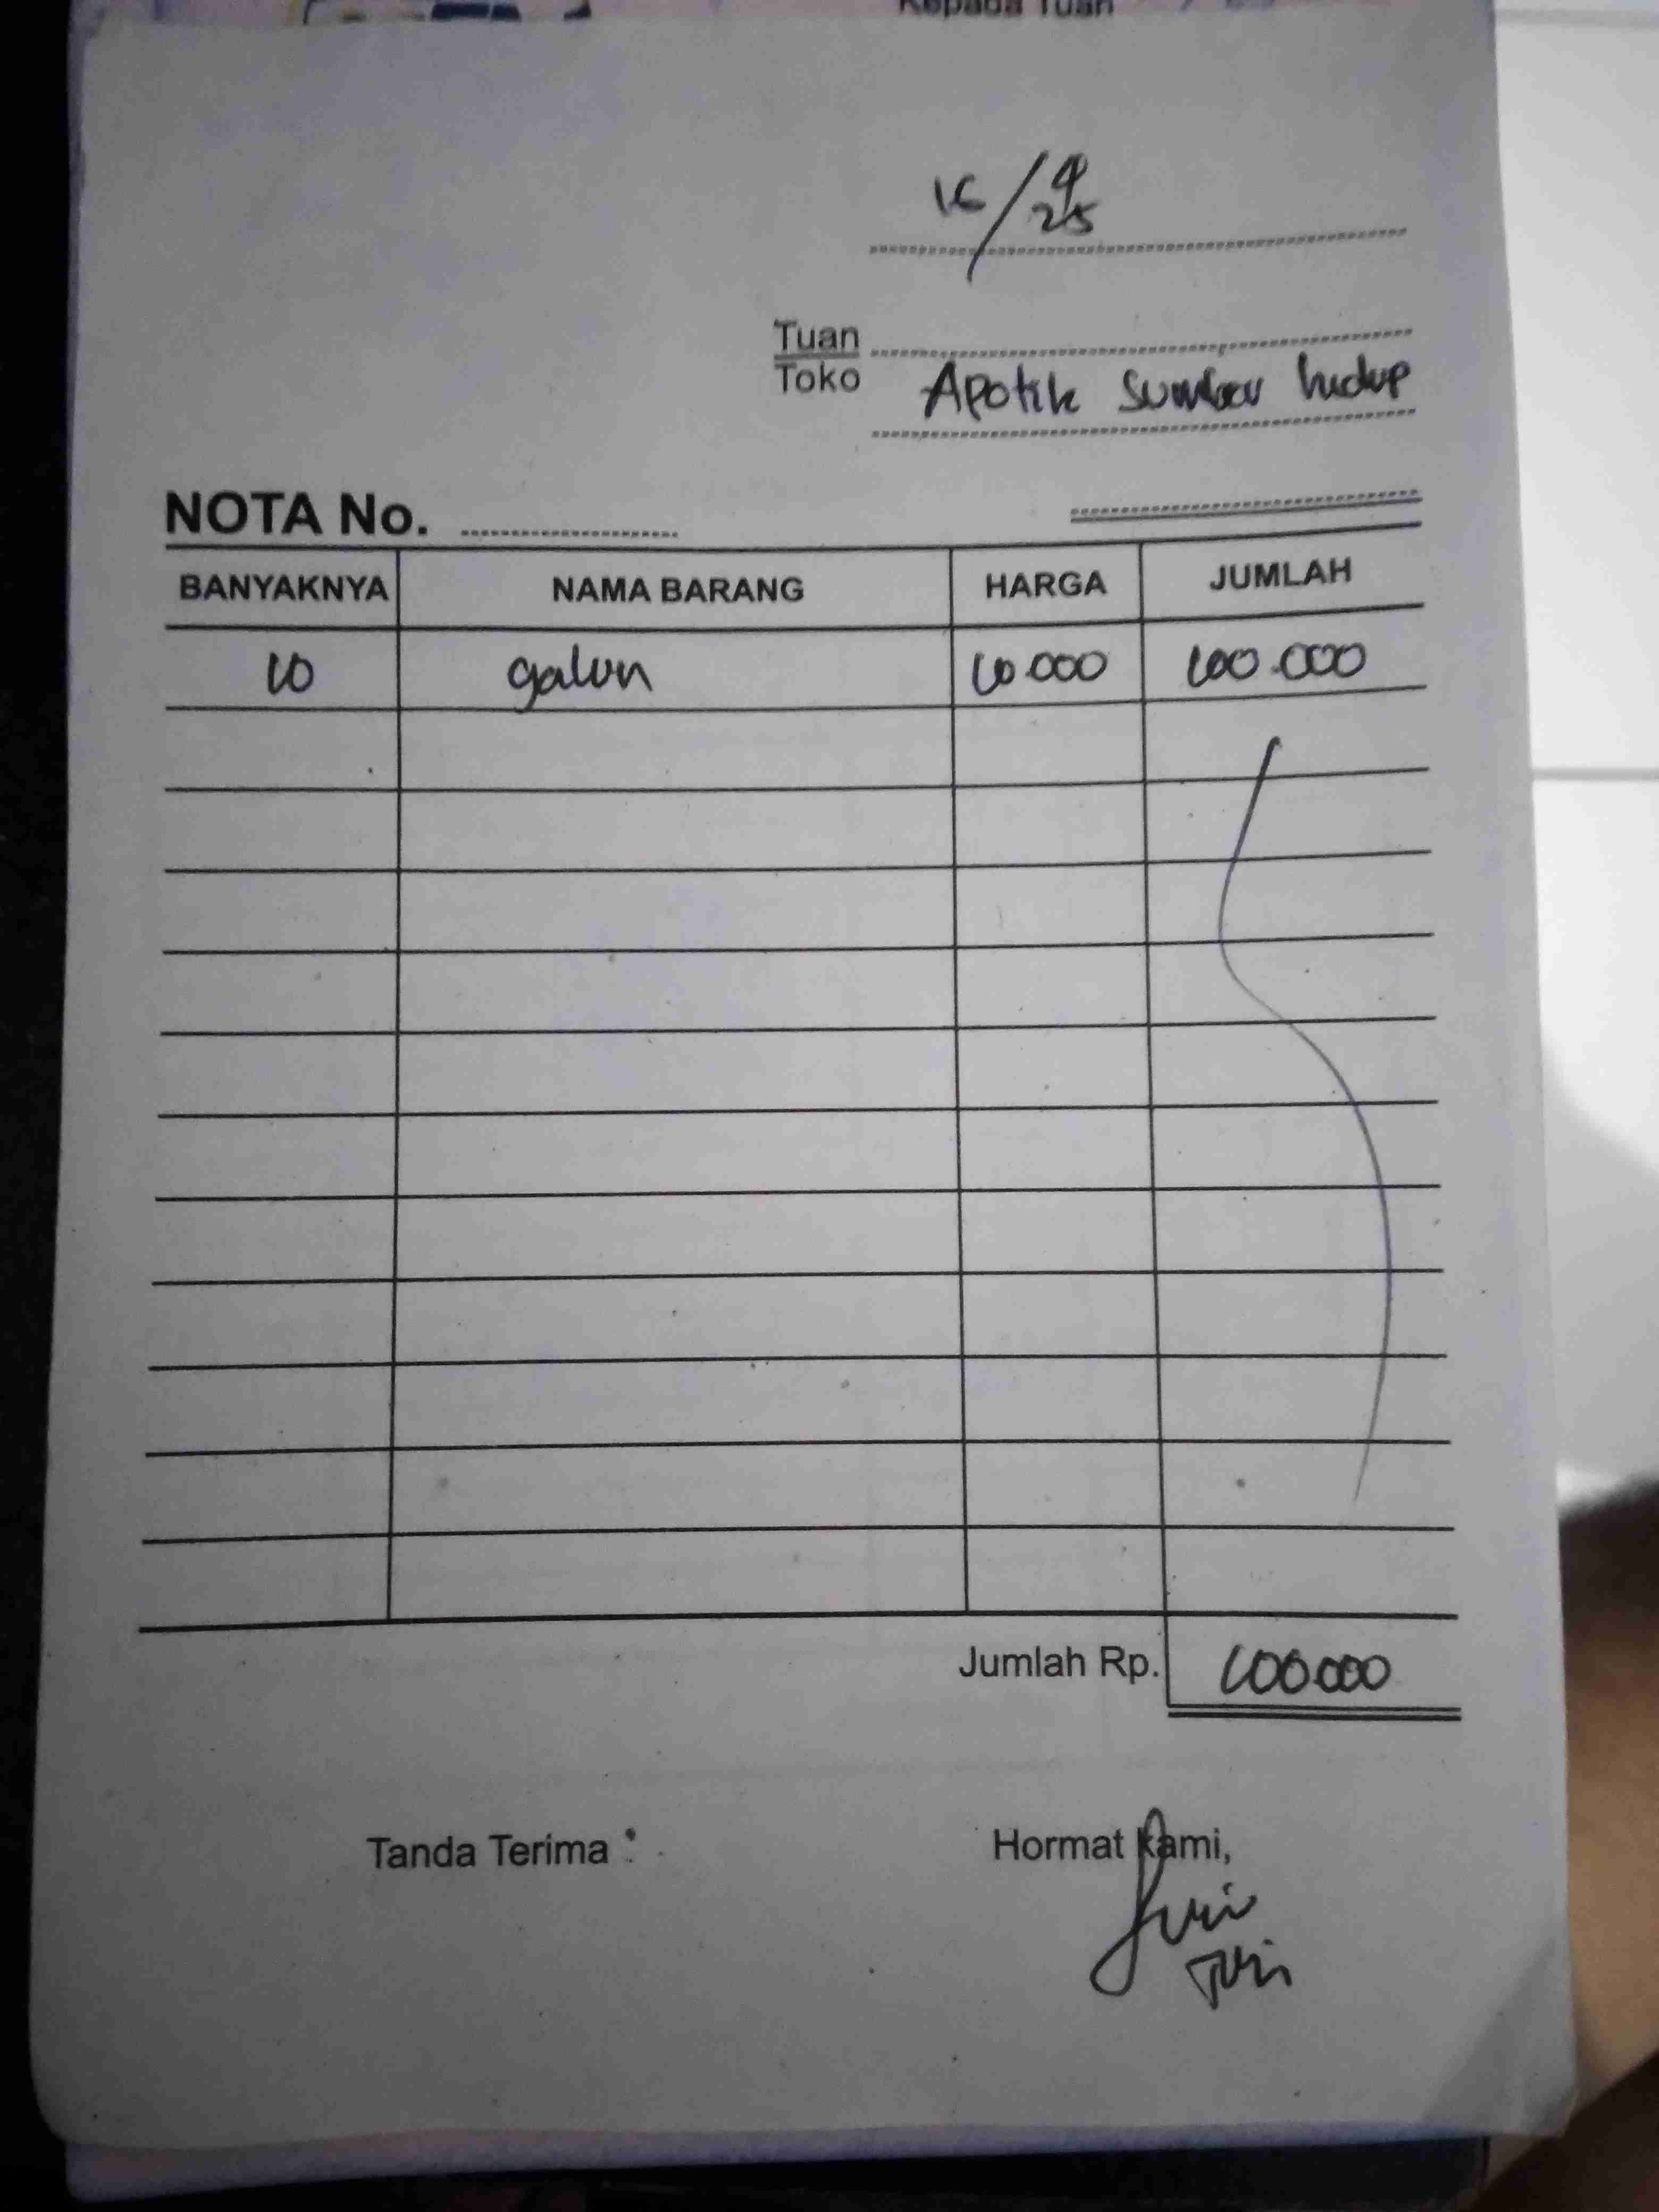 Kepada Tuan
16/4
25
Tuan
Toko Apotik Sumber hidup
NOTA No.
BANYAKNYA NAMA BARANG HARGA JUMLAH
10 galon 10.000 100.000
Jumlah Rp. 100.000
Tanda Terima : Hormat Kami,